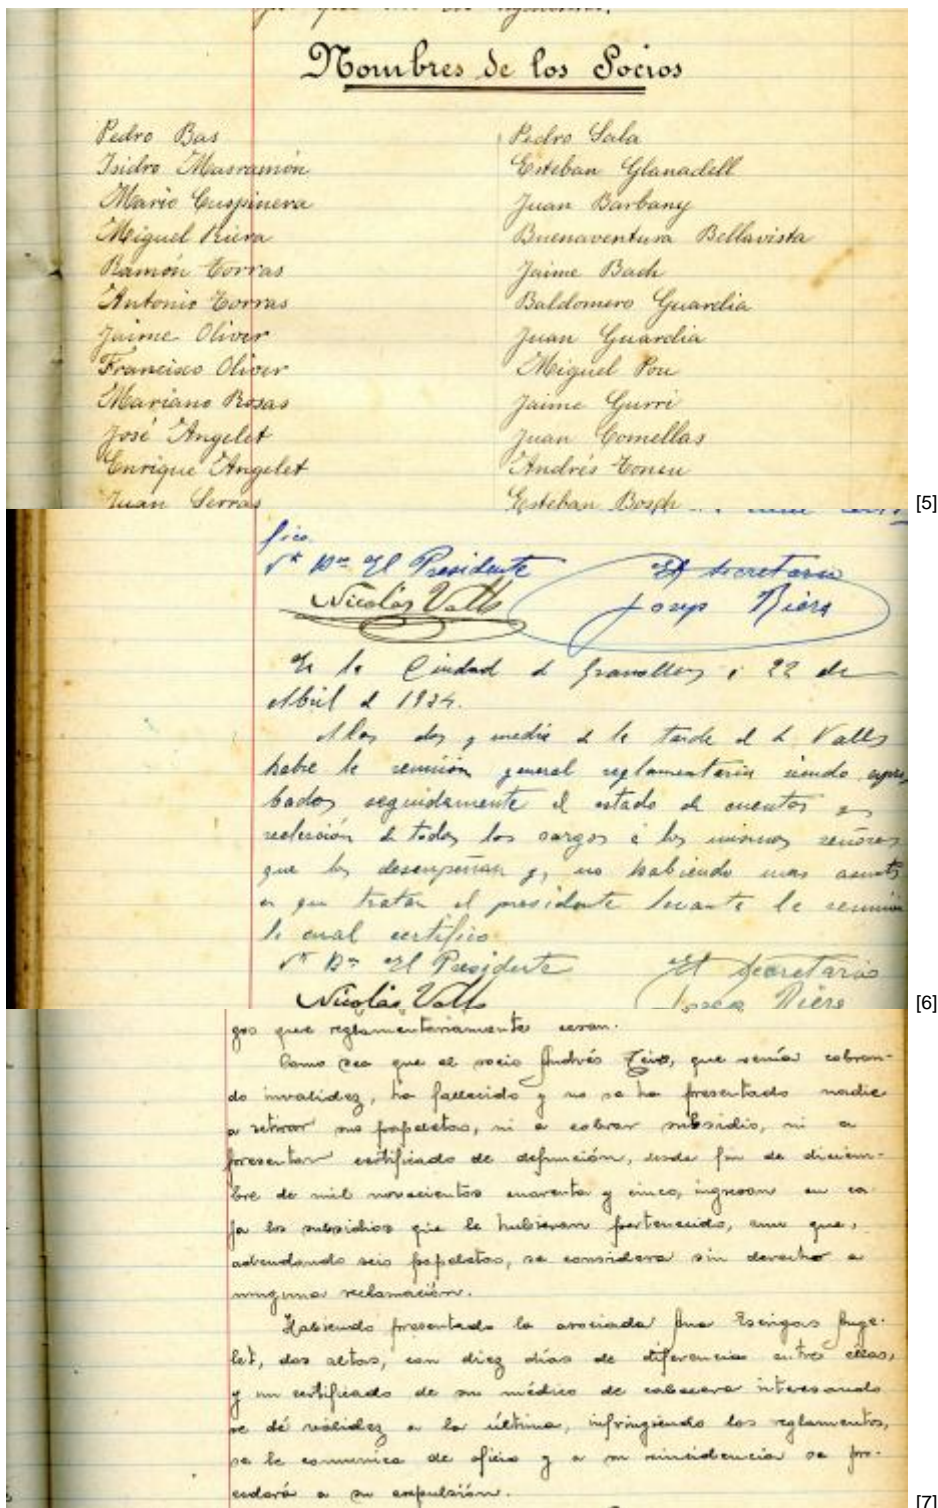 Nombres de los Socios
Pedro Bas
Isidro Masramón
Mario Cuspinera
Miguel Riera
Ramón Torras
Antonio Torras
Jaime Oliver
Francisco Oliver
Mariano Rosas
José Angelet
Enrique Angelet
Juan Serras
Pedro Sala
Esteban Glanadell
Juan Barbany
Buenaventura Bellavista
Jaime Bach
Baldomero Guardia
Juan Guardia
Miguel Pou
Jaime Gurri
Juan Comellas
Andrés
Esteban Bosch
[5]
fico.
Vº Bº El Presidente
El Secretario
Nicolás Valls
Josep Riera
En la Ciudad d Granollers a 22 de
Abril d 1934.
A las dos y media d la tarde el d Valls
habre la reunión general reglamentaria siendo apro
bados seguidamente el estado de cuentas y
reelección d todos los cargos a los mismos señores
que los desempeñan y, no habiendo mas asunto
en que tratar el presidente levanta la reunión
lo cual certifico.
Vº Bº El Presidente
El Secretario
Nicolás Valls
Josep Riera
[6]
gos que reglamentariamente cesan.
Como sea que el socio Andrés, que venía cobran-
do invalidez, ha fallecido y no se ha presentado nadie
a retirar sus papeletas, ni a cobrar subsidio, ni a
presentar certificado de defunción, desde fin de diciem-
bre de mil novecientos cuarenta y cinco, ingresan en ca
ja los subsidios que le hubieran pertenecido, aun que,
adeudando seis papeletas, se considera sin derecho a
ninguna reclamación.
Habiendo presentado la asociada Ana Ange-
let, dos altas, con diez días de diferencia entre ellas,
y un certificado de su médico de cabecera interesando
se dé validez a la última, infringiendo los reglamentos,
se le comunica de oficio y a su reincidencia se pro-
cederá a su expulsión.
[7]